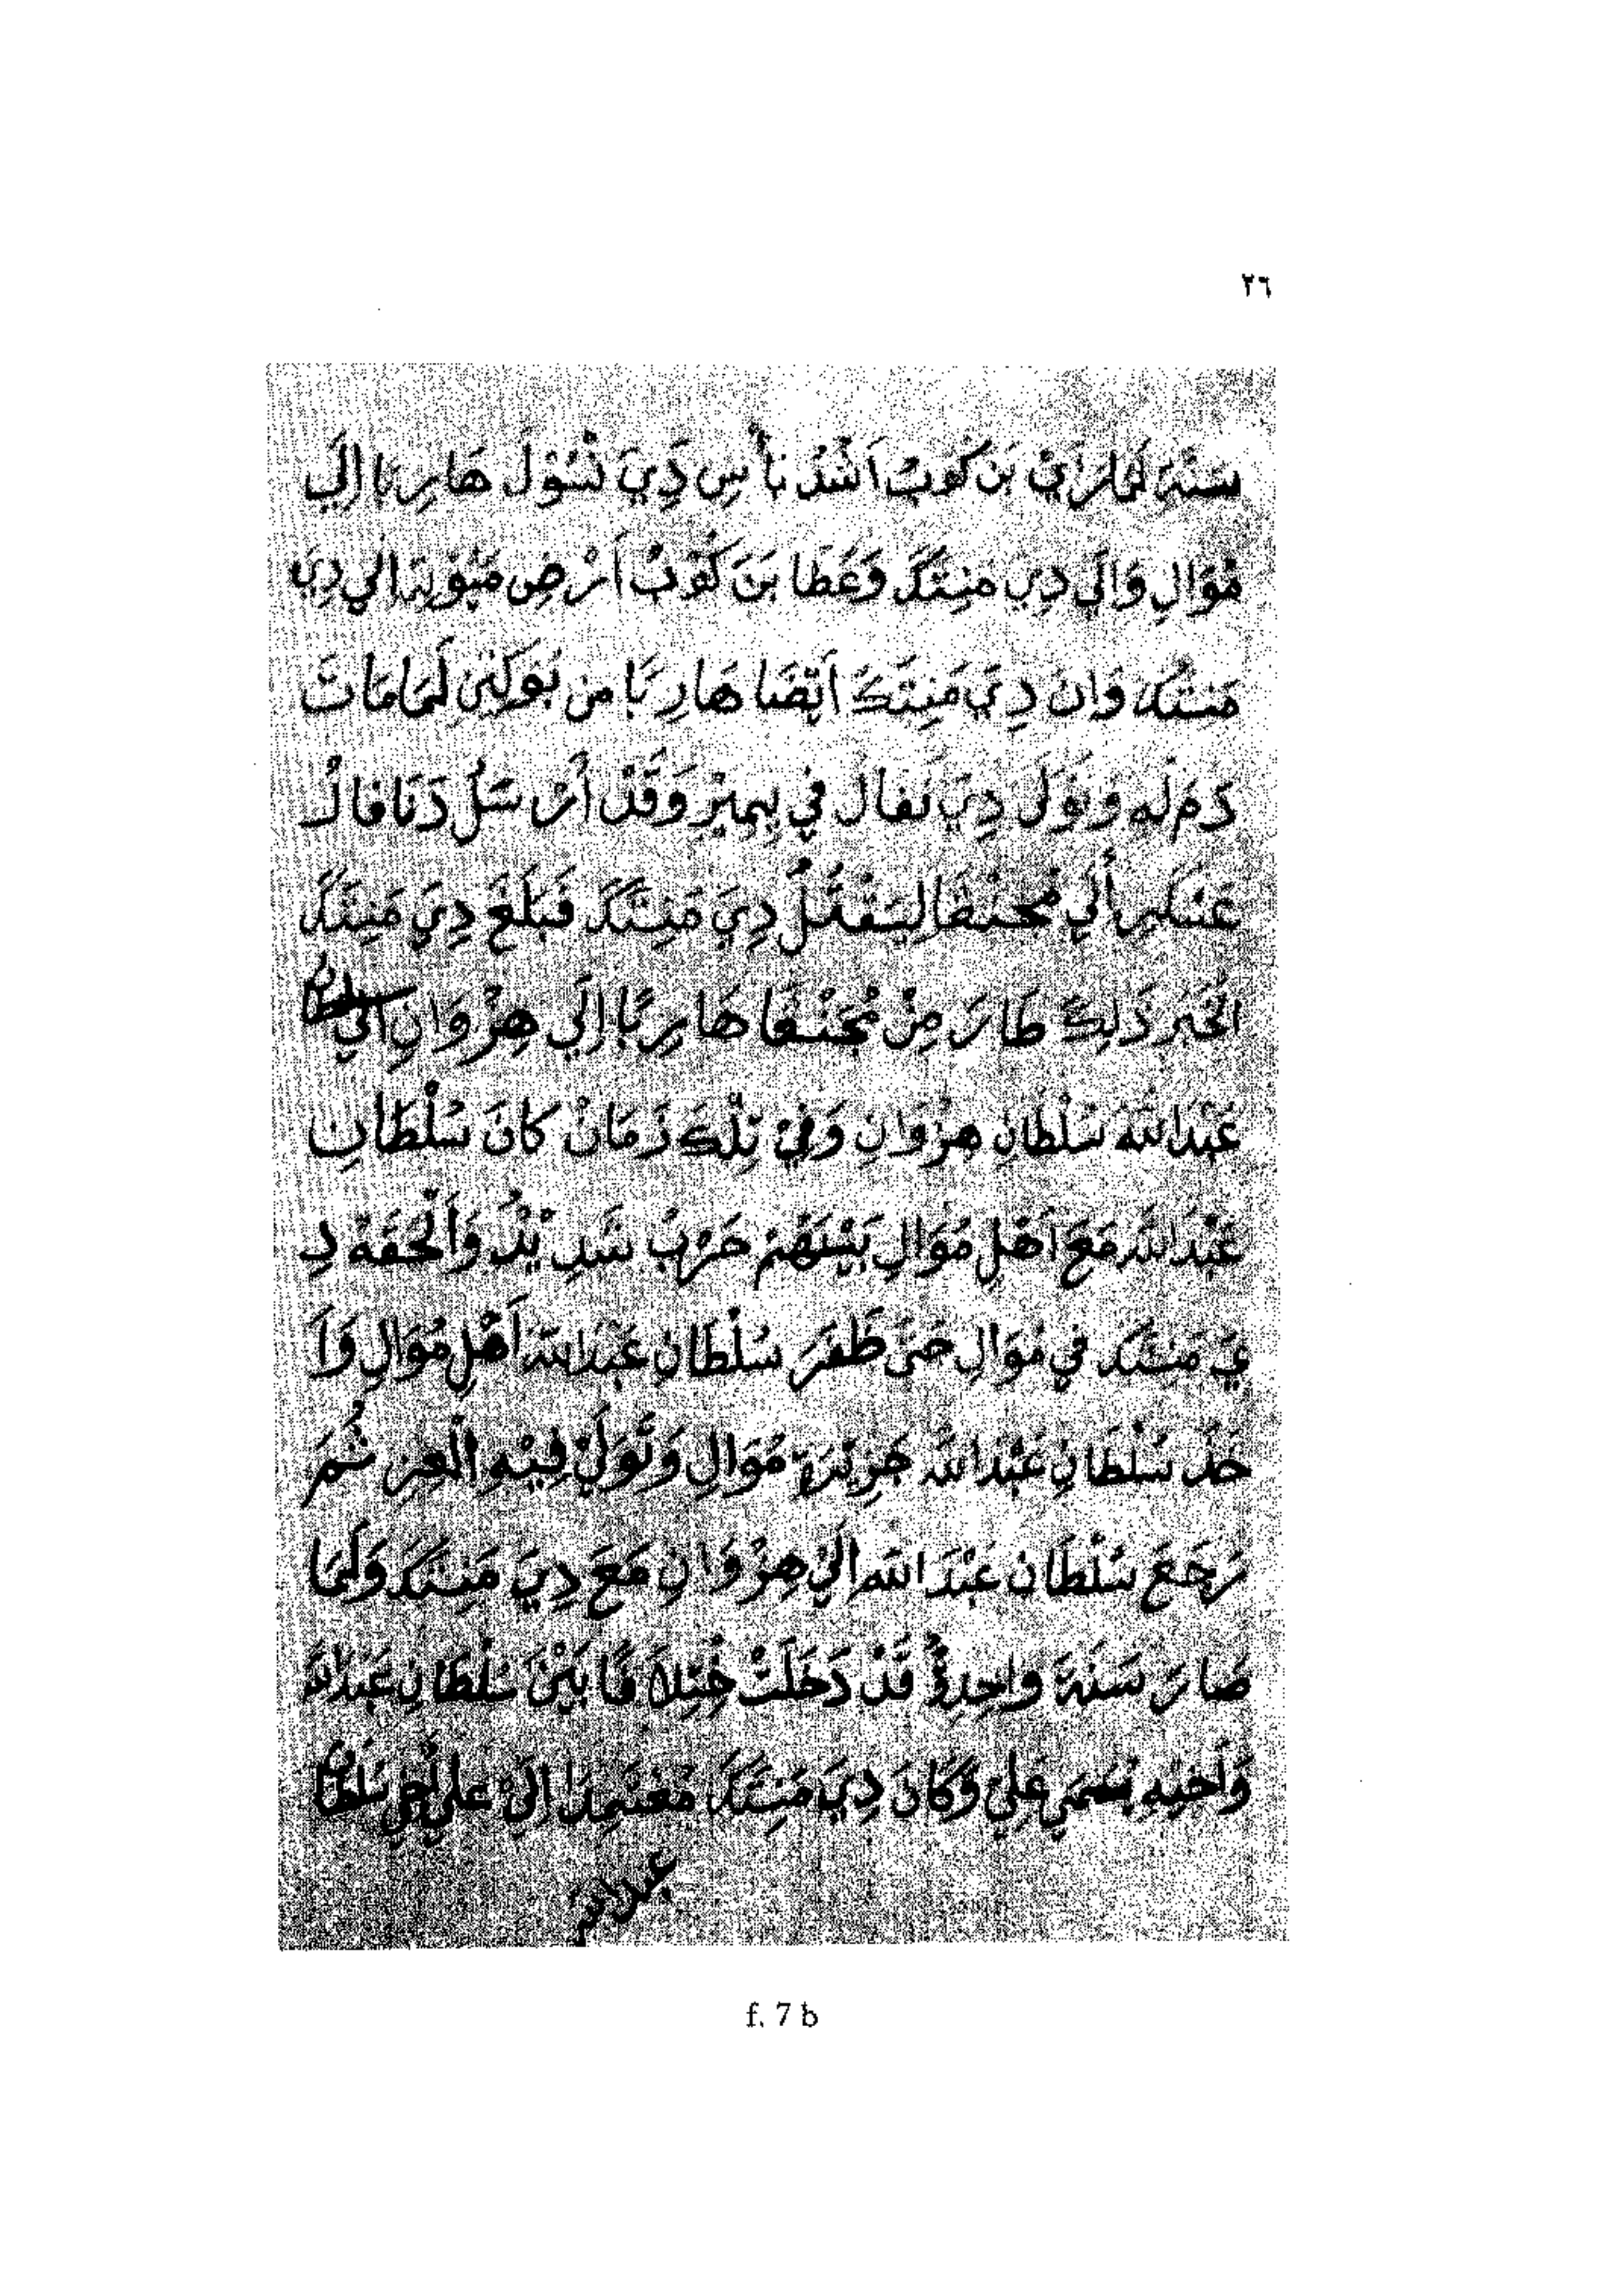 ٢٦
سَنَةِ لَمَّا رَأَيْ بَن كَوبُ اَشَدُّ بَأسِ دِيَ نَسُوْلَ هَارِبًا اِلَي
مُوَالِ وَالَي دِي مَنِتَكَ وَعَطَا بَنَ كُوْبُ اَرْضِ مَيُوْتِه اَلَي دِيَ
مَنِتَكَ وَان دِيَ مَنِتَكَ اَيْضَا هَارِبًا مِن بُوَكِنِي لَمَا مَاتَ
دَمَلَه وَتَوَلَى دِيَ نَفَالَ فِي بِمِيْزِ وَقَدْ أَرْسَلُ دَنَافَالُ
عَسْكَرِ أَلَي مُجَنْطَا لِيَقْتُلُ دِيَ مَنِتَكَ فَبَلَغَ دِيَ مَنِتَكَ
الْخَبَر ذَلِكَ طَارَ مِنْ مُجَنْطَا هَارِبًا اِلَي هِزْوَانِ اَلَي سلطان
عَبْدَالله سُلْطَانِ هِزْوَانِ وَفِيْ تِلْكَ زَمَانْ كَانَ سُلْطَانِ
عَبْدَالله مَعَ اَهْلِ مُوَالِ بَيْنَهُمْ حَرْبُ شَدِيْدُ وَاَلْحَقَهْ دِ
يَ مَنِتَكَ فِي مُوَالِ حَتَّى ظَفَرَ سُلْطَانِ عَبْدَالله اَهْلِ مُوَالِ وَاَ
خَذَ سُلْطَانِ عَبْدَالله جَزِيْرَة مُوَالِ وَتَوَلَيْ فِيْهِ اَلْعِز ثُمَّ
رَجَعَ سُلْطَانْ عَبْدَ الله اَلَيْ هِزْوَانِ مَعَ دِيَ مَنِتَكَ وَلَمَّا
صَارَ سَنَةَ وَاحِدَةُ قَدْ دَخَلَتْ فِتْنَة مَا بَيْنَ سُلْطَانِ عَبْدَالله
وَاَخِيْهِ يُسَمَي عَلِيْ وَكَانَ دِيَ مَنِتَكَ مُعْتَمِدًا اِلَيْ عَلي أَخِي سُلْطَان
عبدالله
f. 7 b